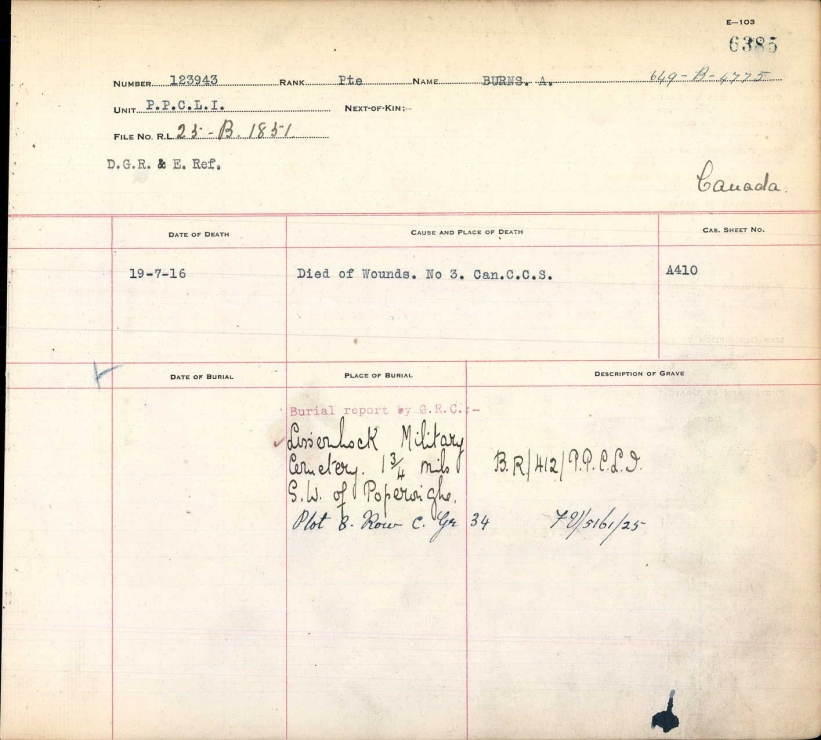 E-103
6385
NUMBER 123943 RANK Pte NAME BURNS. A. 649-B-4775
UNIT P.P.C.L.I. NEXT-OF-KIN:-
FILE NO. R.L. 25-B. 1851.
D.G.R. & E. Ref.
Canada.
DATE OF DEATH CAUSE AND PLACE OF DEATH CAS. SHEET NO.
19-7-16 Died of Wounds. No 3. Can.C.C.S. A410
DATE OF BURIAL PLACE OF BURIAL DESCRIPTION OF GRAVE
Burial report by G.R.C.:-
Lissenhock Military
Cemetery. 1 3/4 mils B.R/412/P.P.C.L.I.
S.W. of Poperinghe.
Plot 8. Row C. Gr 34